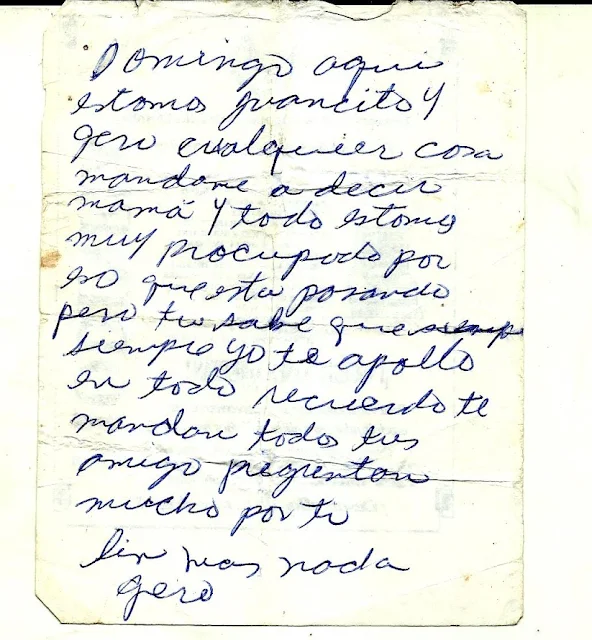 Domingo aqui
estomo Juancito y
gero cualquier cosa
mandame a decir
mamá y todo estomo
muy procupado por
eso que esta pasando
pero tu sabe que siemp
siempre yo te apollo
en todo recuerdo te
mandan todos tus
amigo pregunton
mucho por ti
Sin mas nada
gero